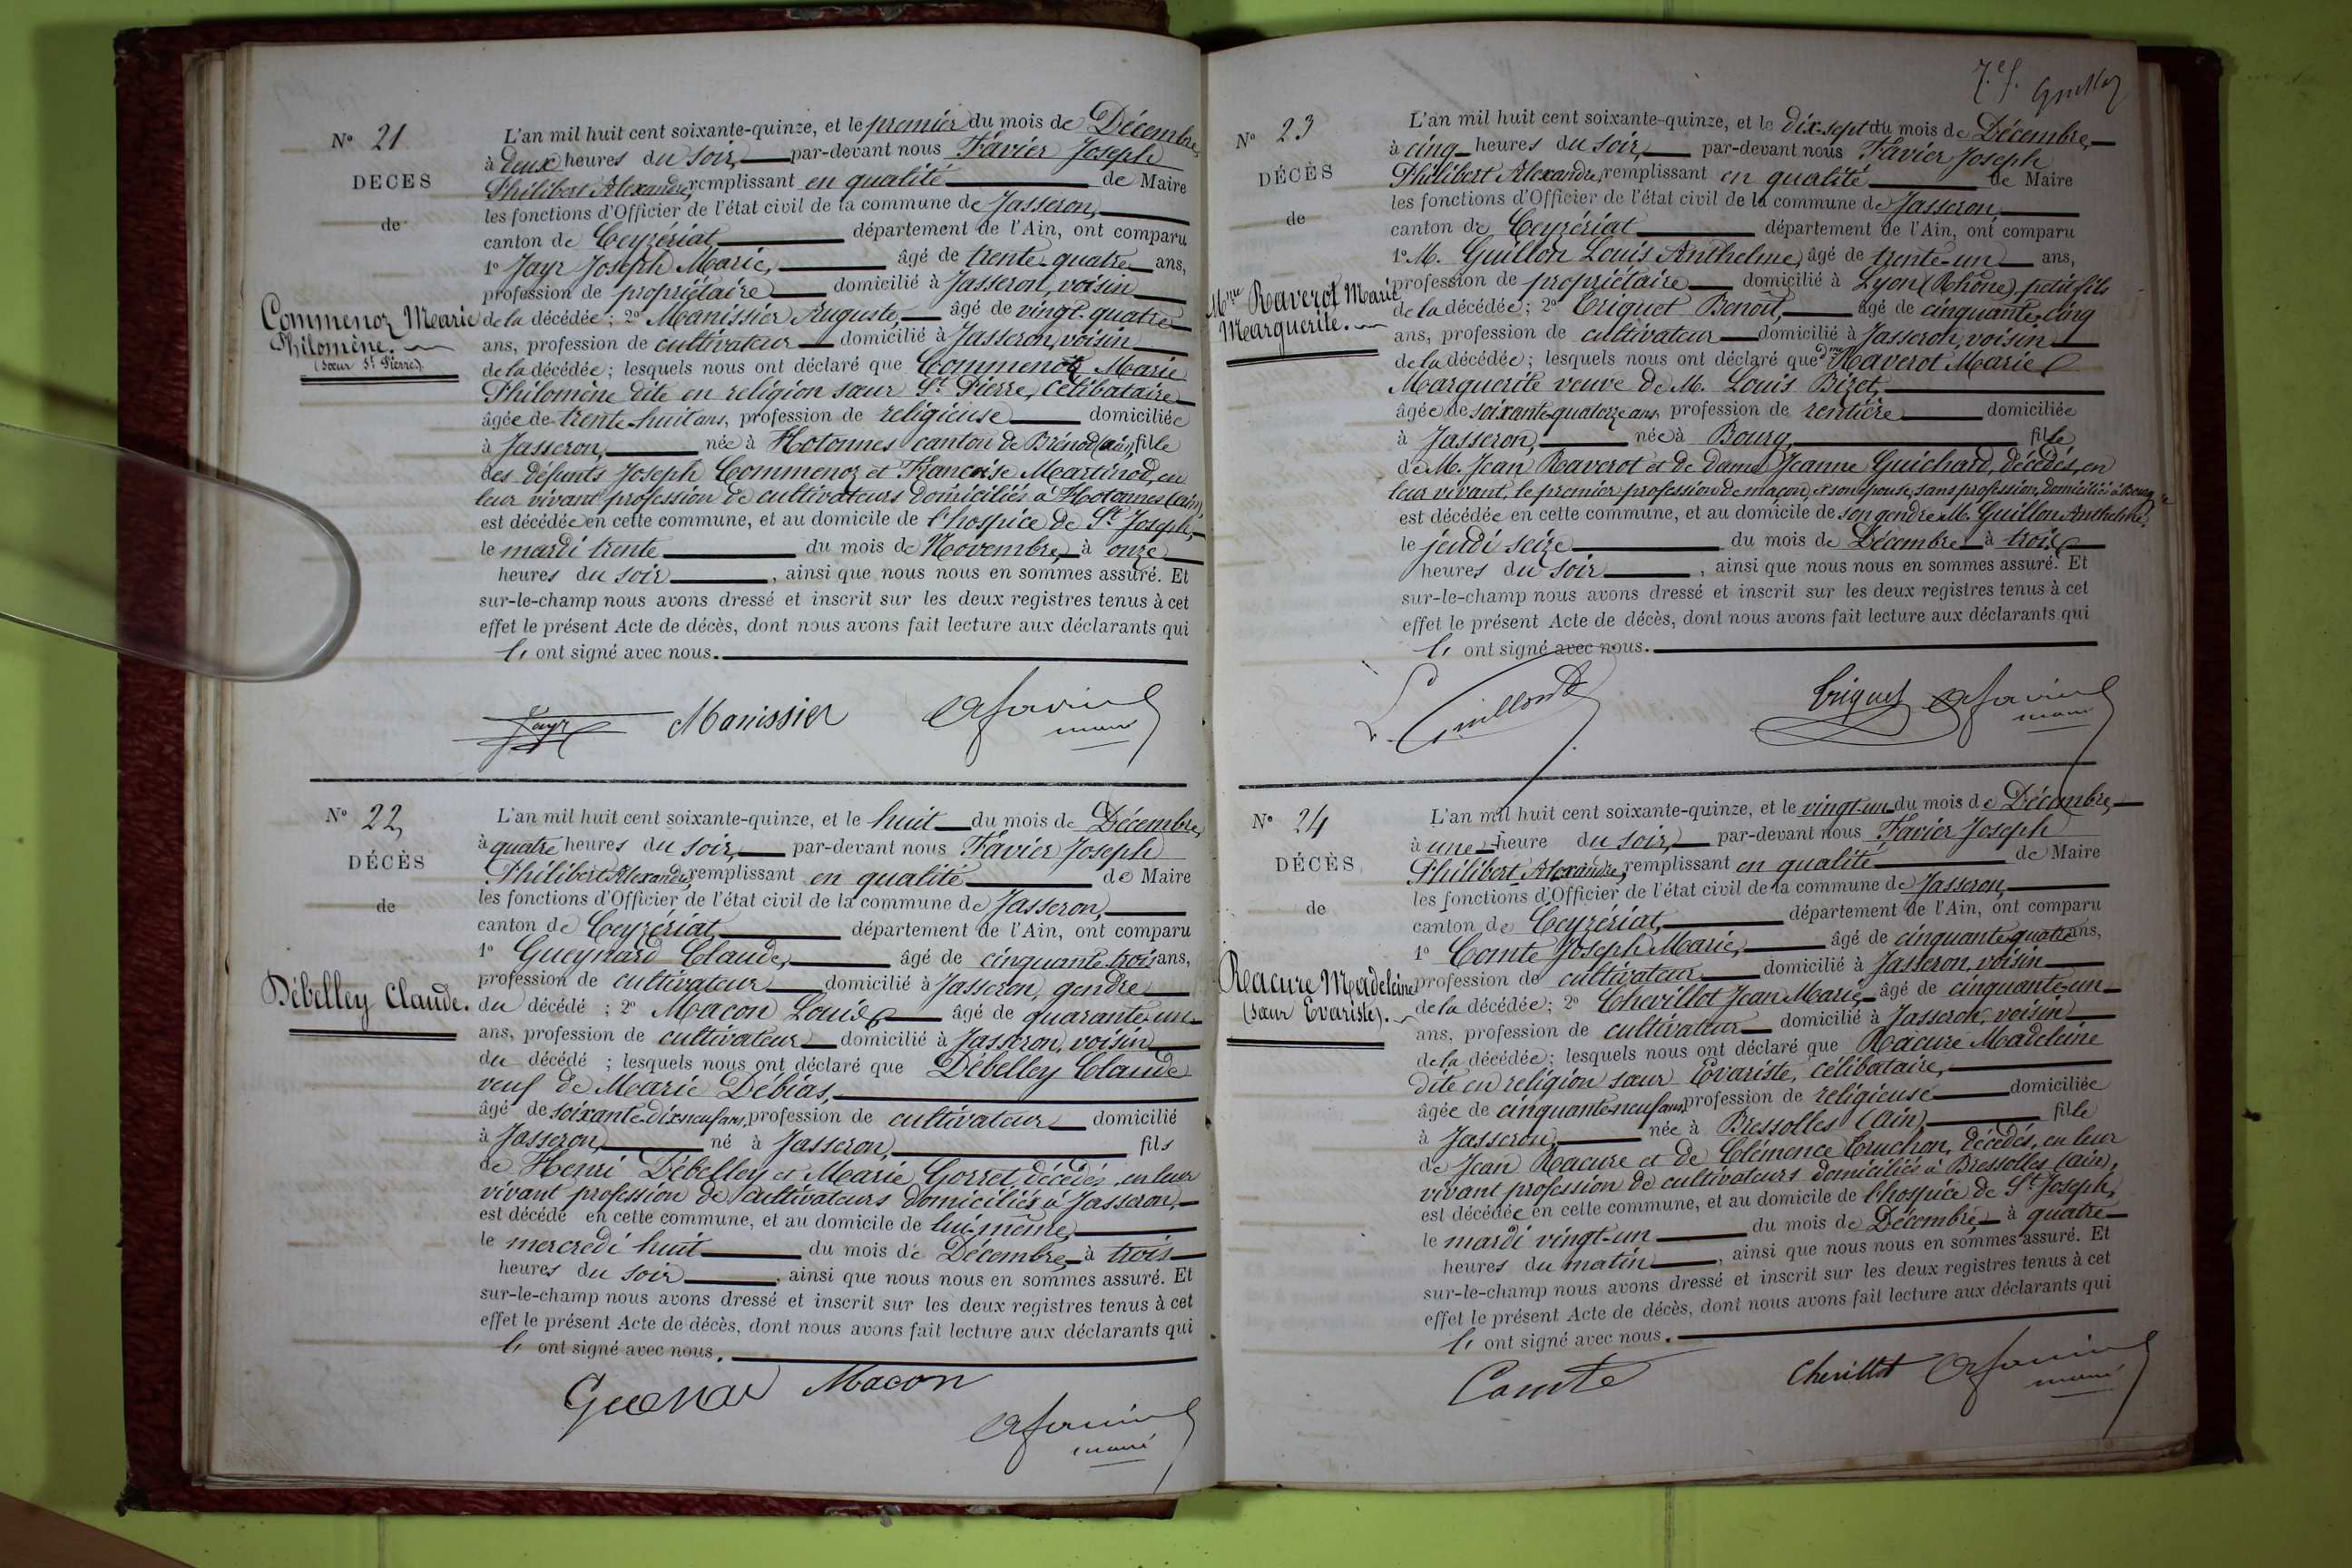 N° 21
DECES
de
Commenoz Marie
Philomène.
(sœur St Pierre).
L'an mil huit cent soixante-quinze, et le premier du mois de Décembre,
à deux heures du soir, par-devant nous Favier Joseph
Philibert Alexandre, remplissant en qualité de Maire
les fonctions d'Officier de l'état civil de la commune de Jasseron,
canton de Ceyzériat, département de l'Ain, ont comparu
1° Jayr Joseph Marie, âgé de trente-quatre ans,
profession de propriétaire domicilié à Jasseron, voisin
de la décédée; 2° Manissier Auguste, âgé de vingt-quatre
ans, profession de cultivateur domicilié à Jasseron, voisin
de la décédée; lesquels nous ont déclaré que Commenoz Marie
Philomène dite en religion sœur St Pierre, célibataire
âgée de trente-huit ans, profession de religieuse domiciliée
à Jasseron, née à Hotonnes canton de Brénod (ain), fille
des défunts Joseph Commenoz et Francoise Martinod, en
leur vivant profession de cultivateurs domiciliés à Hotonnes (ain),
est décédée en cette commune, et au domicile de l'hospice de St Joseph,
le mardi trente du mois de Novembre, à onze
heures du soir, ainsi que nous nous en sommes assuré. Et
sur-le-champ nous avons dressé et inscrit sur les deux registres tenus à cet
effet le présent Acte de décès, dont nous avons fait lecture aux déclarants qui
ont signé avec nous.
Jayr Manissier afavier
maire
N° 22
DÉCÈS
de
Débelley Claude.
L'an mil huit cent soixante-quinze, et le huit du mois de Décembre,
à quatre heures du soir, par-devant nous Favier Joseph
Philibert Alexandre, remplissant en qualité de Maire
les fonctions d'Officier de l'état civil de la commune de Jasseron,
canton de Ceyzériat, département de l'Ain, ont comparu
1° Gueynard Claude, âgé de cinquante-trois ans,
profession de cultivateur domicilié à Jasseron, gendre
du décédé ; 2° Macon Louis âgé de quarante-un
ans, profession de cultivateur domicilié à Jasseron, voisin
du décédé ; lesquels nous ont déclaré que Débelley Claude
veuf de Marie Débias,
âgé de soixante-dix-neuf ans, profession de cultivateur domicilié
à Jasseron, né à Jasseron, fils
de Henri Débelley et Marie Gorret, décédés, en leur
vivant profession de cultivateurs domiciliés à Jasseron,
est décédé en cette commune, et au domicile de lui-même,
le mercredi huit du mois de Décembre, à trois
heures du soir, ainsi que nous nous en sommes assuré. Et
sur-le-champ nous avons dressé et inscrit sur les deux registres tenus à cet
effet le présent Acte de décès, dont nous avons fait lecture aux déclarants qui
ont signé avec nous.
Macon
afavier
maire
7.e f.
N° 23
DÉCÈS
de
Mme Raverot Marie
Marguerite.
L'an mil huit cent soixante-quinze, et le dix-sept du mois de Décembre,
à cinq heures du soir, par-devant nous Favier Joseph
Philibert Alexandre, remplissant en qualité de Maire
les fonctions d'Officier de l'état civil de la commune de Jasseron,
canton de Ceyzériat département de l'Ain, ont comparu
1° M. Guillon Louis Anthelme, âgé de trente-un ans,
profession de propriétaire domicilié à Lyon (Rhône), petit fils
de la décédée; 2° Criquet Benoît, âgé de cinquante-cinq
ans, profession de cultivateur domicilié à Jasseron, voisin
de la décédée; lesquels nous ont déclaré que dme Raverot Marie
Marguerite veuve de M. Louis Bizet,
âgée de soixante-quatorze ans, profession de rentière domiciliée
à Jasseron, née à Bourg, fille
de M. Jean Raverot et de dame Jeanne Guichard, décédés, en
leur vivant, le premier profession de maçon, et son épouse, sans profession, domiciliés à Bourg,
est décédée en cette commune, et au domicile de son gendre M. Guillon Anthelme,
le jeudi seize du mois de Décembre à trois
heures du soir, ainsi que nous nous en sommes assuré. Et
sur-le-champ nous avons dressé et inscrit sur les deux registres tenus à cet
effet le présent Acte de décès, dont nous avons fait lecture aux déclarants qui
ont signé avec nous.
L Guillon Criquet afavier
maire
N° 24
DÉCÈS
de
Racure Madeleine
(sœur Evariste).
L'an mil huit cent soixante-quinze, et le vingt-un du mois de Décembre,
à une heure du soir, par-devant nous Favier Joseph
Philibert Alexandre, remplissant en qualité de Maire
les fonctions d'Officier de l'état civil de la commune de Jasseron,
canton de Ceyzériat, département de l'Ain, ont comparu
1° Comte Joseph Marie, âgé de cinquante-quatre ans,
profession de cultivateur domicilié à Jasseron, voisin
de la décédée; 2° Chevillot Jean Marie, âgé de cinquante-un
ans, profession de cultivateur domicilié à Jasseron, voisin
de la décédée; lesquels nous ont déclaré que Racure Madeleine
dite en religion sœur Evariste, célibataire,
âgée de cinquante-neuf ans, profession de religieuse domiciliée
à Jasseron, née à Bressolles (ain), fille
de Jean Racure et de Clémence Cruchon, décédés, en leur
vivant profession de cultivateurs domiciliés à Bressolles (ain),
est décédée en cette commune, et au domicile de l'hospice de St Joseph,
le mardi vingt-un du mois de Décembre, à quatre
heures du matin, ainsi que nous nous en sommes assuré. Et
sur-le-champ nous avons dressé et inscrit sur les deux registres tenus à cet
effet le présent Acte de décès, dont nous avons fait lecture aux déclarants qui
ont signé avec nous.
Comte Chevillot afavier
maire